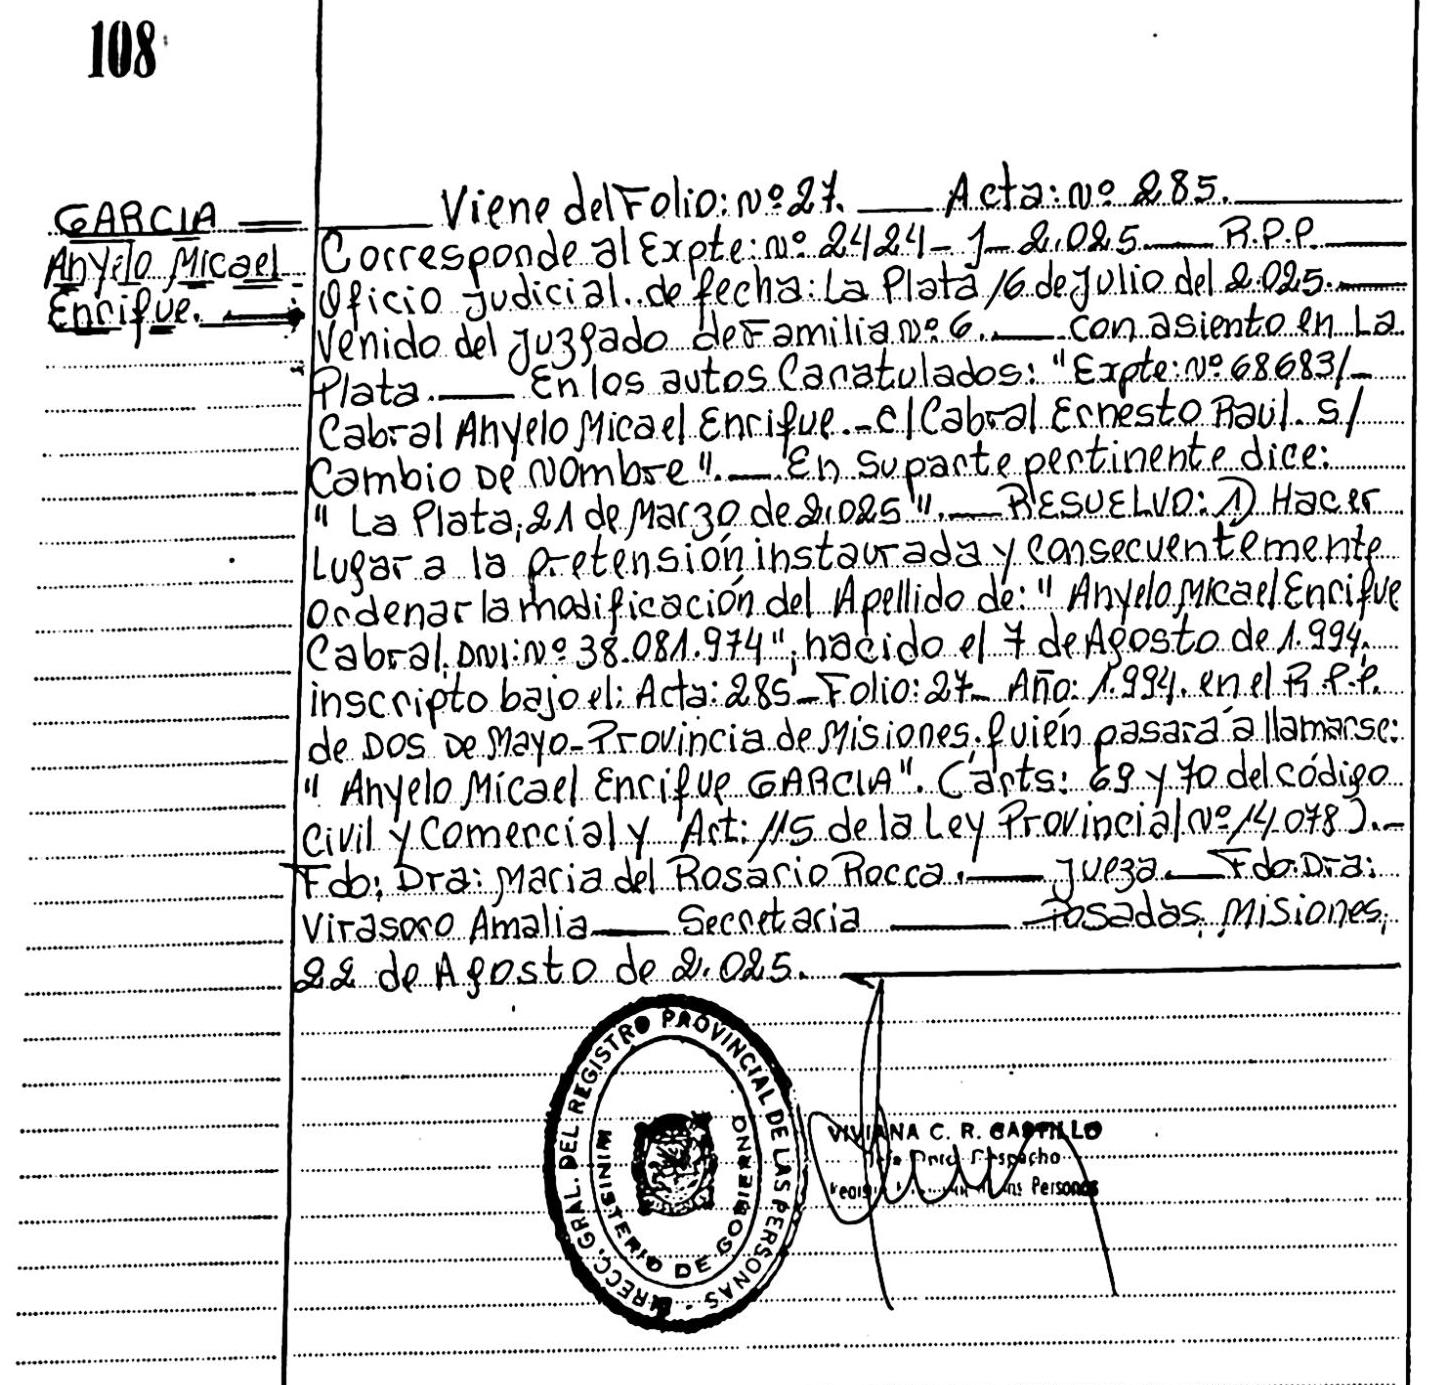 108
GARCIA
Anyelo Micael
Enrique.
Viene del Folio: Nº 27. Acta: Nº 285.
Corresponde al Expte: Nº 2424-J-2.025 R.P.P.
Oficio Judicial. de fecha: La Plata 16 de Julio del 2.025.
Venido del Juzgado de Familia Nº 6. con asiento en La
Plata. En los autos Caratulados: "Expte: Nº 68683/-
Cabral Anyelo Micael Enrique.- c/ Cabral Ernesto Raul. s/
Cambio De Nombre". En su parte pertinente dice:
" La Plata, 21 de Marzo de 2.025". RESUELVO: 1) Hacer
Lugar a la pretensión instaurada y consecuentemente
ordenar la modificación del Apellido de: " Anyelo Micael Enrique
Cabral. DNI: Nº 38.081.974", nacido el 7 de Agosto de 1.994.
inscripto bajo el: Acta: 285 - Folio: 27 - Año: 1.994. en el R.P.P.
de Dos De Mayo - Provincia de Misiones. quién pasará a llamarse:
" Anyelo Micael Enrique GARCIA". (arts: 69 y 70 del código
Civil y Comercial y Art: 115 de la Ley Provincial Nº 14.078).-
Fdo: Dra: Maria del Rosario Rocca. Jueza. Fdo: Dra:
Virasoro Amalia Secretaria Posadas, Misiones,
22 de Agosto de 2.025.
DIRECC. GRAL. DEL REGISTRO PROVINCIAL DE LAS PERSONAS -
MINISTERIO DE GOBIERNO
VIVIANA C. R. CASTILLO
Despacho
Personas